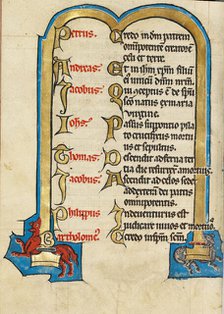 Petrus. Credo in dm patrem
omnipotente creatore
celi et terre.
Andreas. Et in ihm xpm filiu ei
unicu dnm nrm.
Iacobus. Qui conceptus e de spu
sco natus ex maria
uirgine.
Iohs. Passus sub pontio pila
to crucifixus mortuus
et sepultus.
Thomas. Descendit ad inferna ter
tia die resurrex a mortuis
Iacobus. Ascendit ad celos sedet
ad dexteram patris
omnipotentis.
Philippus Inde uenturus est
iudicare uiuos et mortuos
Bartholome. Credo in spm scm.